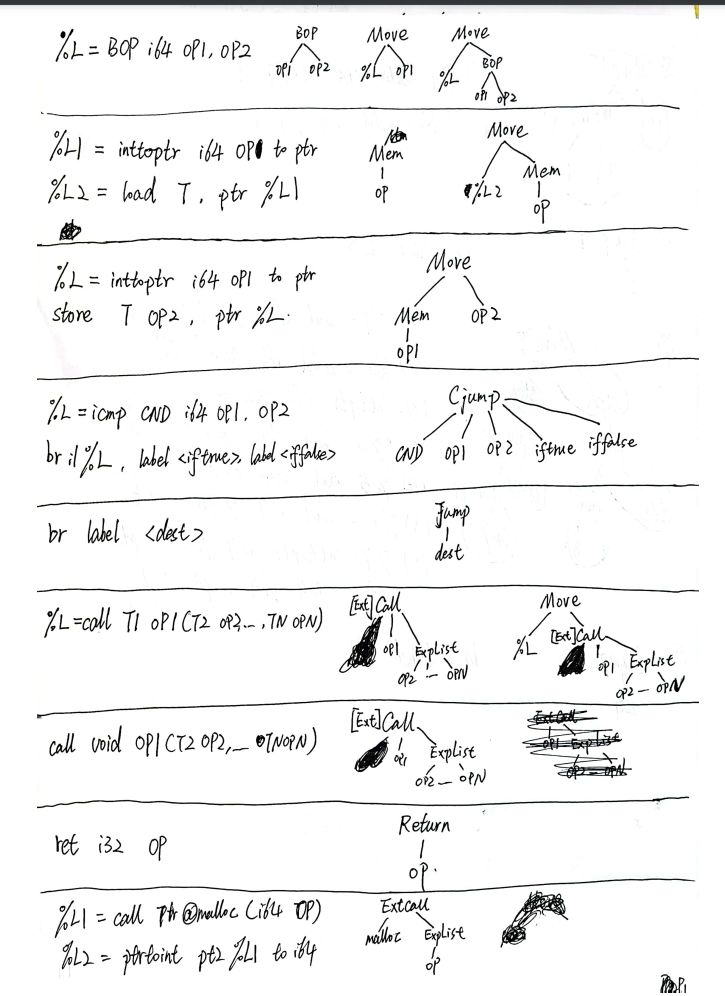 %L = BOP i64 OP1, OP2
BOP
OP1 OP2
Move
%L OP1
Move
%L BOP
OP1 OP2
%L1 = inttoptr i64 OP to ptr
%L2 = load T, ptr %L1
Mem
OP
Move
%L2 Mem
OP
%L = inttoptr i64 OP1 to ptr
store T OP2, ptr %L.
Move
Mem OP2
OP1
%L = icmp CND i64 OP1, OP2
br i1 %L, label <iftrue>, label <iffalse>
Cjump
CND OP1 OP2 iftrue iffalse
br label <dest>
Jump
dest
%L = call T1 OP1 (T2 OP2, ..., TN OPN)
[Ext]Call
OP1 ExpList
OP2 -- OPN
Move
%L [Ext]Call
OP1 ExpList
OP2 -- OPN
call void OP1 (T2 OP2, ... TN OPN)
[Ext]Call
OP1 ExpList
OP2 -- OPN
ExtCall
OP1 ExpList
OP2 -- OPN
ret i32 OP
Return
OP.
%L1 = call ptr @malloc (i64 OP)
%L2 = ptrtoint ptr %L1 to i64
Extcall
malloc ExpList
OP
P1